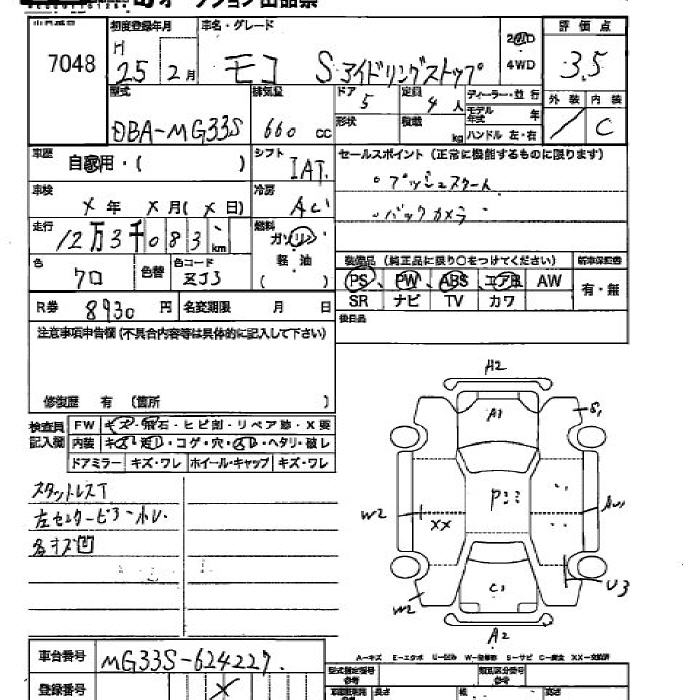 オークション出品票
7048
初度登録年月
H 25年 2月
車名・グレード
モコ S アイドリングストップ
2WD
4WD
評価点
3.5
外装 内装
C
型式
DBA-MG33S
排気量
660 cc
ドア 5
定員 4人
形状
積載 kg
ディーラー・並行
モデル年式 年
ハンドル 左・右
車歴
自家用・( )
シフト
IAT
セールスポイント (正常に機能するものに限ります)
。プッシュスタート
・バックカメラ
車検
X年 X月(X日)
冷房
AC
走行
12万3千083km
燃料
ガソリン
軽油
( )
色
クロ
色替
色コード
ZJ3
装備品 (純正品に限り○をつけてください)
新車保証書
PS、PW、ABS、エアB AW
SR ナビ TV カワ
有・無
R券 8930円
名変期限 月 日
後日品
注意事項申告欄(不具合内容等は具体的に記入して下さい)
修復歴 有 (箇所 )
検査員記入欄
FW キズ・飛石・ヒビ割・リペア跡・X要
内装
コゲ・穴
ヘタリ・破レ
ドアミラー キズ・ワレ ホイール・キャップ キズ・ワレ
スタットレスT
左センターピラー
各キズ凹
A2
A1
S1
P
W2
XX
C1
U3
W2
A2
車台番号
MG33S-624227
登録番号
X
A-キズ E-エクボ U-凹み W-補修跡 S-サビ C-腐食 XX-交換済
型式指定番号
参考
類別区分番号
参考
長さ
幅
高さ